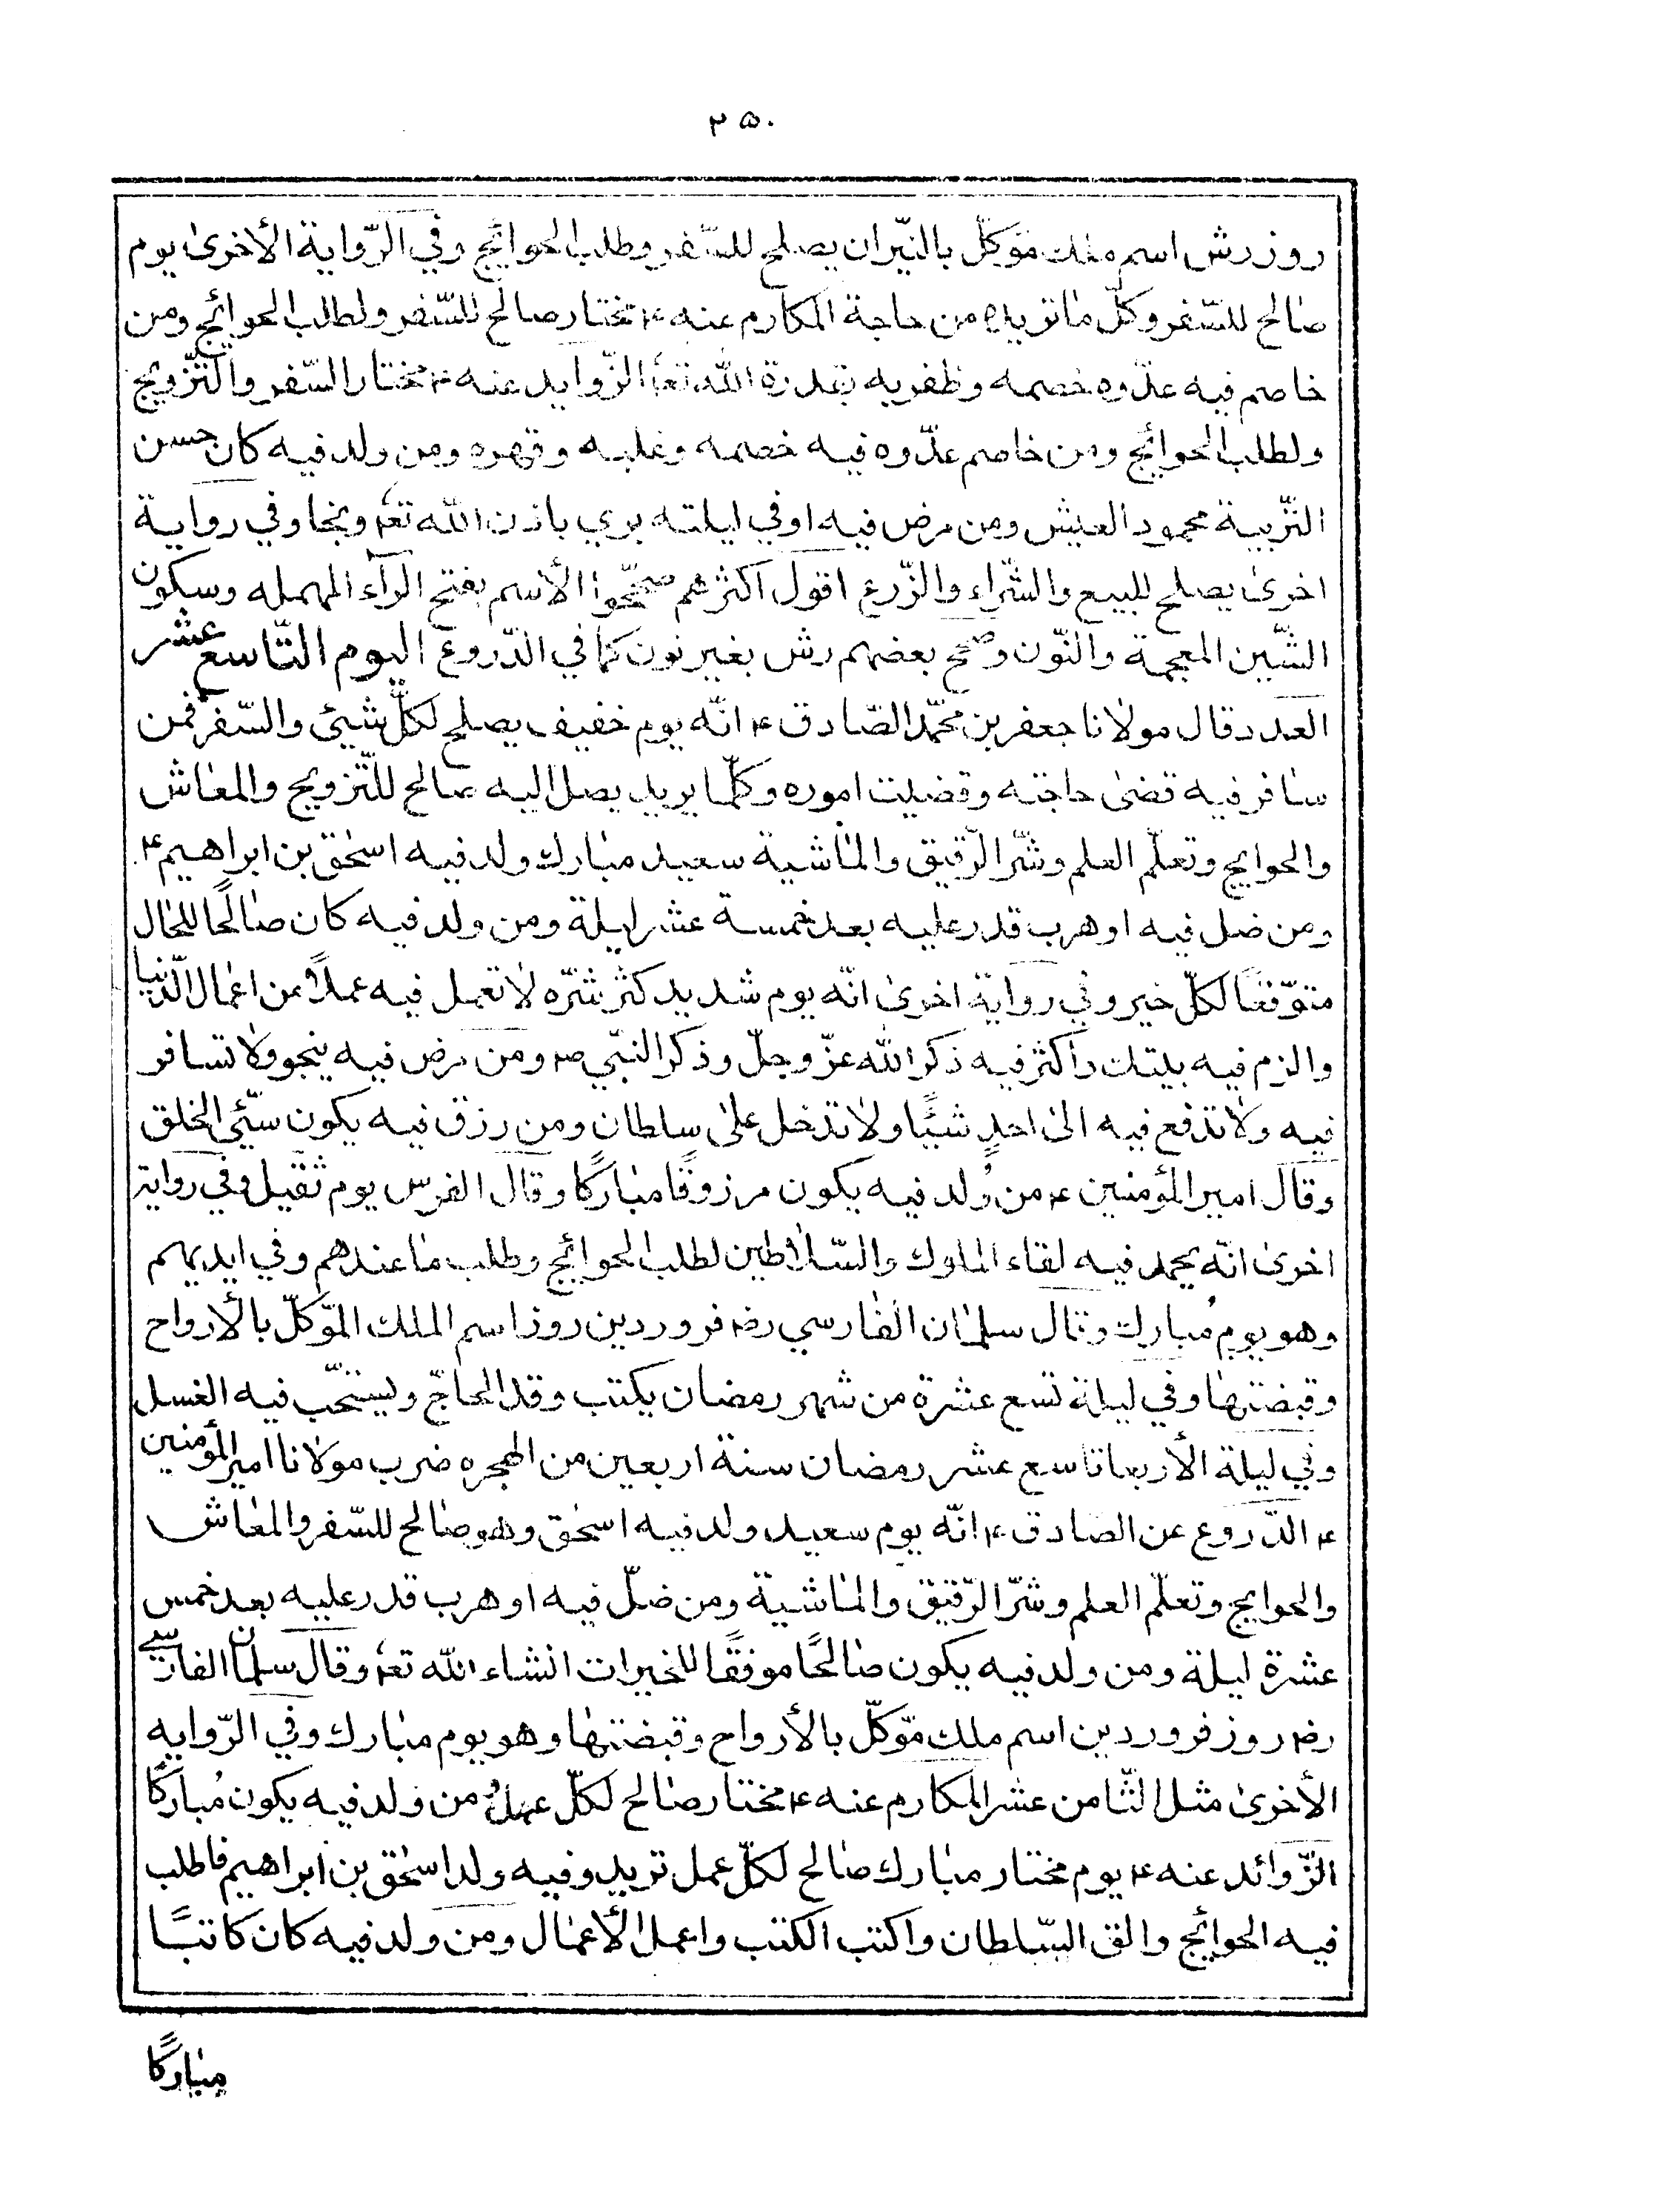 ٢٥٠
روز رش اسم ملك مَوَكّل بالنّيران يصلح للسّفر وطلب الحوائج وفي الرّواية الأخرى يوم
صالح للسّفر وكلّ ما تريد من حاجة المكارم عنه ع مختار صالح للسّفر ولطلب الحوائج ومن
خاصم فيه عدّوه خصمه وظفر به بقدرة الله تعا الزّوايد عنه ع مختار السّفر والتّزويج
ولطلب الحوائج ومن خاصم عدّوه فيه خصمه وغلبه وقهره ومن ولد فيه كان حسن
التّربية محمود العيش ومن مرض فيه اوفي ليلته بري باذن الله تعا ونجا وفي رواية
اخرى يصلح للبيع والشّراء والزّرع اقول اكثرهم صحّحوا الأسم بفتح الرآء المهمله وسكون
الشّين المعجمة والنّون وصحّح بعضهم رش بغير نون كما في الدّروع اليوم التّاسع عشر
العدد قال مولانا جعفر بن محمّد الصّادق ع انّه يوم خفيف يصلح لكلّ شيئ والسّفر فمن
سافر فيه قضى حاجته وقضيت اموره وكلّما يريد يصل اليه صالح للتّزويج والمعاش
والحوايج وتعلّم العلم وشّرا الرّقيق والماشية سعيد مبارك ولد فيه اسحق بن ابراهيم ع
ومن ضل فيه او هرب قدر عليه بعد خمسة عشر ليلة ومن ولد فيه كان صالحًا للحال
متوّقعًا لكلّ خير وفي رواية اخرى انّه يوم شديد كثر شرّه لا تعمل فيه عملاً من اعمال الدّنيا
والزم فيه بيتك واكثر فيه ذكر الله عزّ وجلّ وذكر النبّي ص ومن مرض فيه ينجو ولا تسافر
فيه ولا تدفع فيه الى احدٍ شيئًا ولا تدخل على سلطان ومن رزق فيه يكون سيّئ الخلق
وقال امير المؤمنين ع من وُلد فيه يكون مرزوقًا مباركًا وقال الفرس يوم ثقيل وفي رواية
اخرى انّه يحمد فيه لقاء الملوك والسّلاطين لطلب الحوائج وطلب ما عندهم وفي ايديهم
وهو يوم مُبارك وقال سلمان الفارسي رض فروردين روز اسم الملك المّوكلّ بالأرواح
وقبضتها وفي ليلة تسع عشرة من شهر رمضان يكتب وفد الحاجّ ويستحّب فيه الغسل
وفي ليلة الأربعا تاسع عشر رمضان سنة اربعين من الهجره ضرب مولانا امير المؤمنين
ع الدّروع عن الصادق ع انّه يوم سعيد ولد فيه اسحق وهو صالح للسّفر والمعاش
والحوايج وتعلّم العلم وشرّا الرّقيق والماشية ومن ضلّ فيه او هرب قدر عليه بعد خمس
عشرة ليلة ومن ولد فيه يكون صالحًا موفقًا للخيرات انشاء الله تعا وقال سلمان الفارسي
رض روز فروردين اسم ملك مّوكلّ بالأرواح وقبضتها وهو يوم مبارك وفي الرّوايه
الأخرى مثل الثّامن عشر المكارم عنه ع مختار صالح لكلّ عمل ومن ولد فيه يكون مُباركًا
الزّوائد عنه ع يوم مختار مبارك صالح لكلّ عمل تريد وفيه ولد اسحق بن ابراهيم فاطلب
فيه الحوائج والق السّلطان واكتب الكتب واعمل الأعمال ومن ولد فيه كان كاتبًا
مباركًا